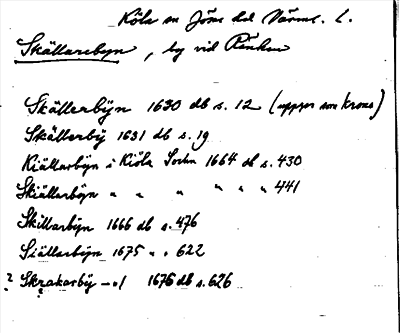 Köla sn Jösse hd Värml. l.
Skällarebyn, by vid Ränken
Skällerbÿn 1630 db s. 12 (uppger som krono)
Skällerbÿ 1631 db s. 19
Kiällarbÿn i Kiöla Sochn 1664 db s. 430
Skiällerbÿn " " " " " " 441
Skillarbÿn 1666 db s. 476
Siällerbÿn 1675 " " 622
? Skrakarbÿ 1676 db s. 626